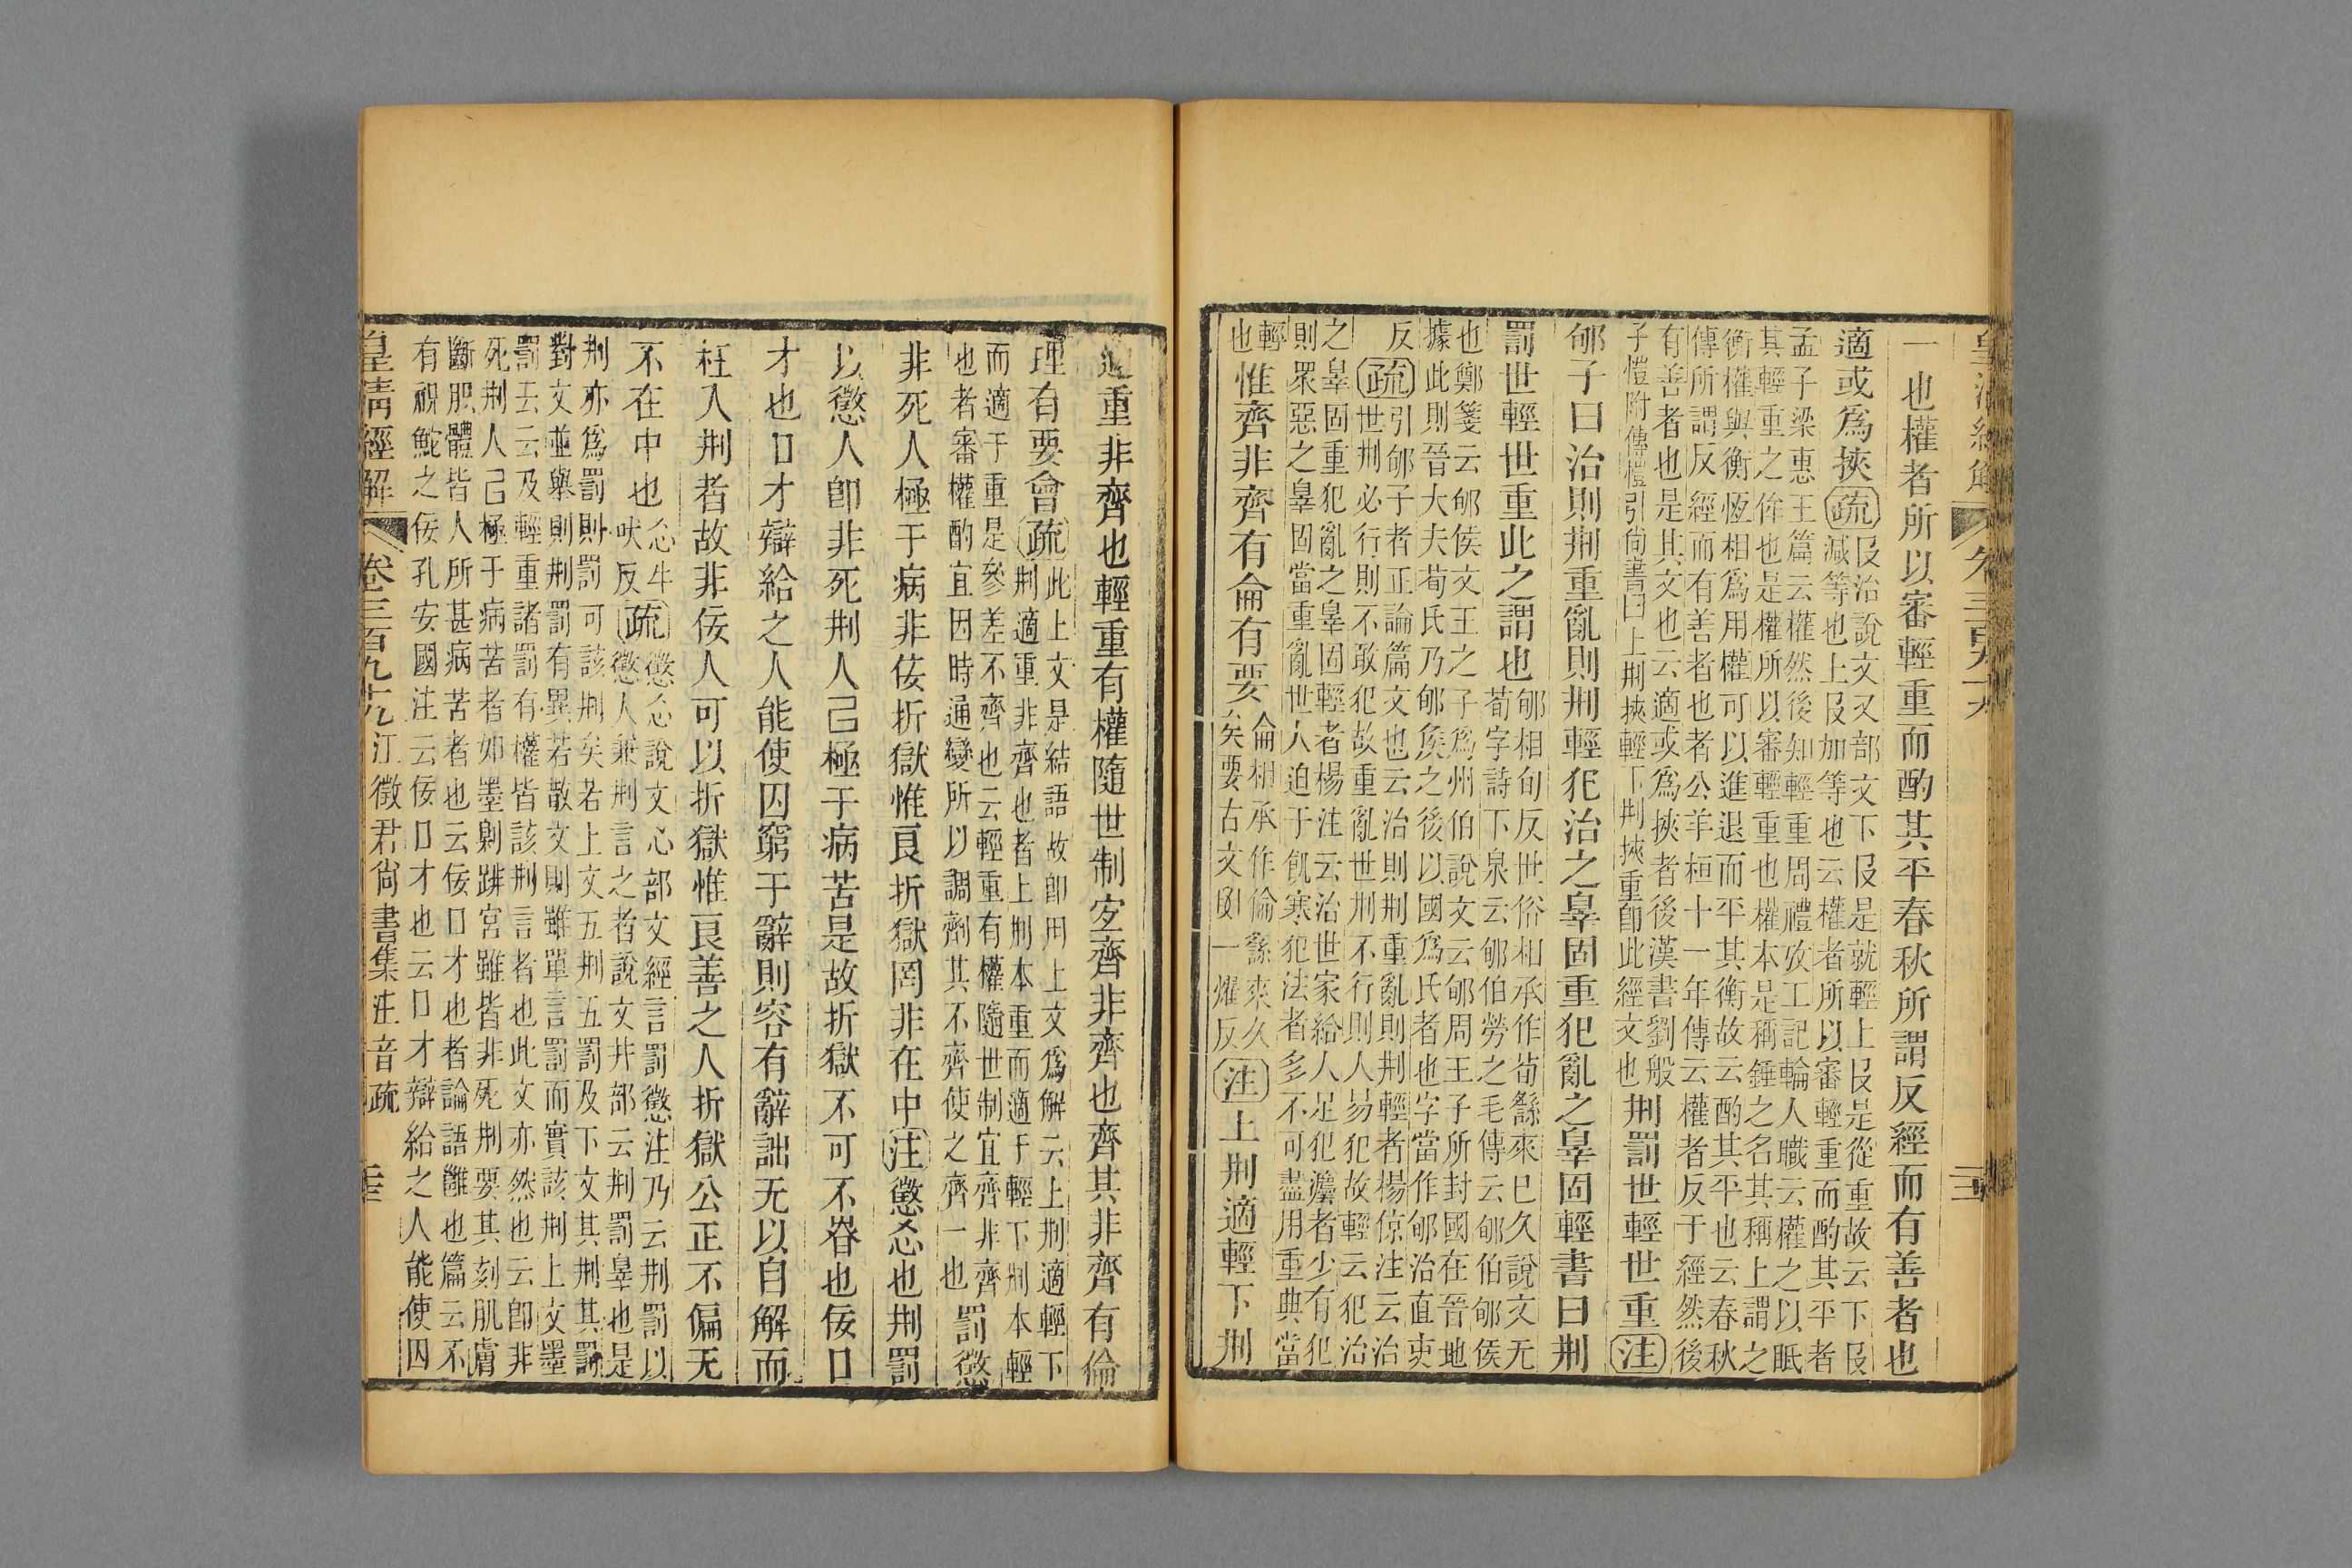 一也權者所以審輕重而酌其平春秋所謂反經而有善者也
適或爲挾疏𠬝治說文又部文下𠬝是就輕上𠬝是從重故云下𠬝
減等也上𠬝加等也云權者所以審輕重而酌其平者
孟子梁惠王篇云權然後知輕重周禮攷工記輪人職云權之以眡
其輕重之侔也是權所以審輕重也權本是稱錘之名其稱上謂之
衡權與衡恆相爲用權可以進退而平其衡故云酌其平也云春秋
傳所謂反經而有善者也者公羊桓十一年傳云權者反于經然後
有善者也是其文也云適或爲挾者後漢書劉般
子愷附傳愷引尙書曰上刑挾輕下刑挾重卽此經文也
刑罰世輕世重注
郇子曰治則刑重亂則刑輕犯治之辠固重犯亂之辠固輕書曰刑
罰世輕世重此之謂也郇相旬反世俗相承作荀繇來已久說文无
荀字詩下泉云郇伯勞之毛傳云郇伯郇侯
也鄭箋云郇侯文王之子爲州伯說文云郇周王子所封國在晉地
據此則晉大夫荀氏乃郇矦之後以國爲氏者也字當作郇治直吏
反疏引郇子者正論篇文也云治則刑重亂則刑輕者楊倞注云治
世刑必行則不敢犯故重亂世刑不行則人易犯故輕云犯治
之辠固重犯亂之辠固輕者楊注云治世家給人足犯灋者少有犯
則眾惡之辠固當重亂世人迫于飢寒犯法者多不可盡用重典當
輕
也
惟齊非齊有侖有要侖相承作倫繇來久
矣要古文一燿反
注上刑適輕下刑
適重非齊也輕重有權隨世制宐齊非齊也齊其非齊有倫
理有要會疏此上文是結語故卽用上文爲解云上刑適輕下
刑適重非齊也者上刑本重而適于輕下刑本輕
而適于重是參差不齊也云輕重有權隨世制宜齊非齊
也者審權酌宜因時通變所以調劑其不齊使之齊一也
罰懲
非死人極于病非佞折獄惟良折獄罔非在中注懲忿也刑罰
以懲人卽非死刑人己極于病苦是故折獄不可不眘也佞口
才也口才辯給之人能使囚窮于辭則容有辭詘无以自解而
枉入刑者故非佞人可以折獄惟良善之人折獄公正不偏无
不在中也忿牛
吠反
疏懲忿說文心部文經言罰懲注乃云刑罰以
懲人兼刑言之者說文井部云刑罰辠也是
刑亦爲罰則罰可該刑矣若上文五刑五罰及下文其刑其罰
對文並舉則刑罰有異若散文則雖單言罰而實該刑上文墨
罰云云及輕重諸罰有權皆該刑言者也此文亦然也云卽非
死刑人己極于病苦者如墨劓跰宮雖皆非死刑要其刻肌膚
斷肥體皆人所甚病苦者也云佞口才也者論語雝也篇云不
有祝鮀之佞孔安國注云佞口才也云口才辯給之人能使囚
皇清經解 卷三百九十九 江徵君尙書集注音疏